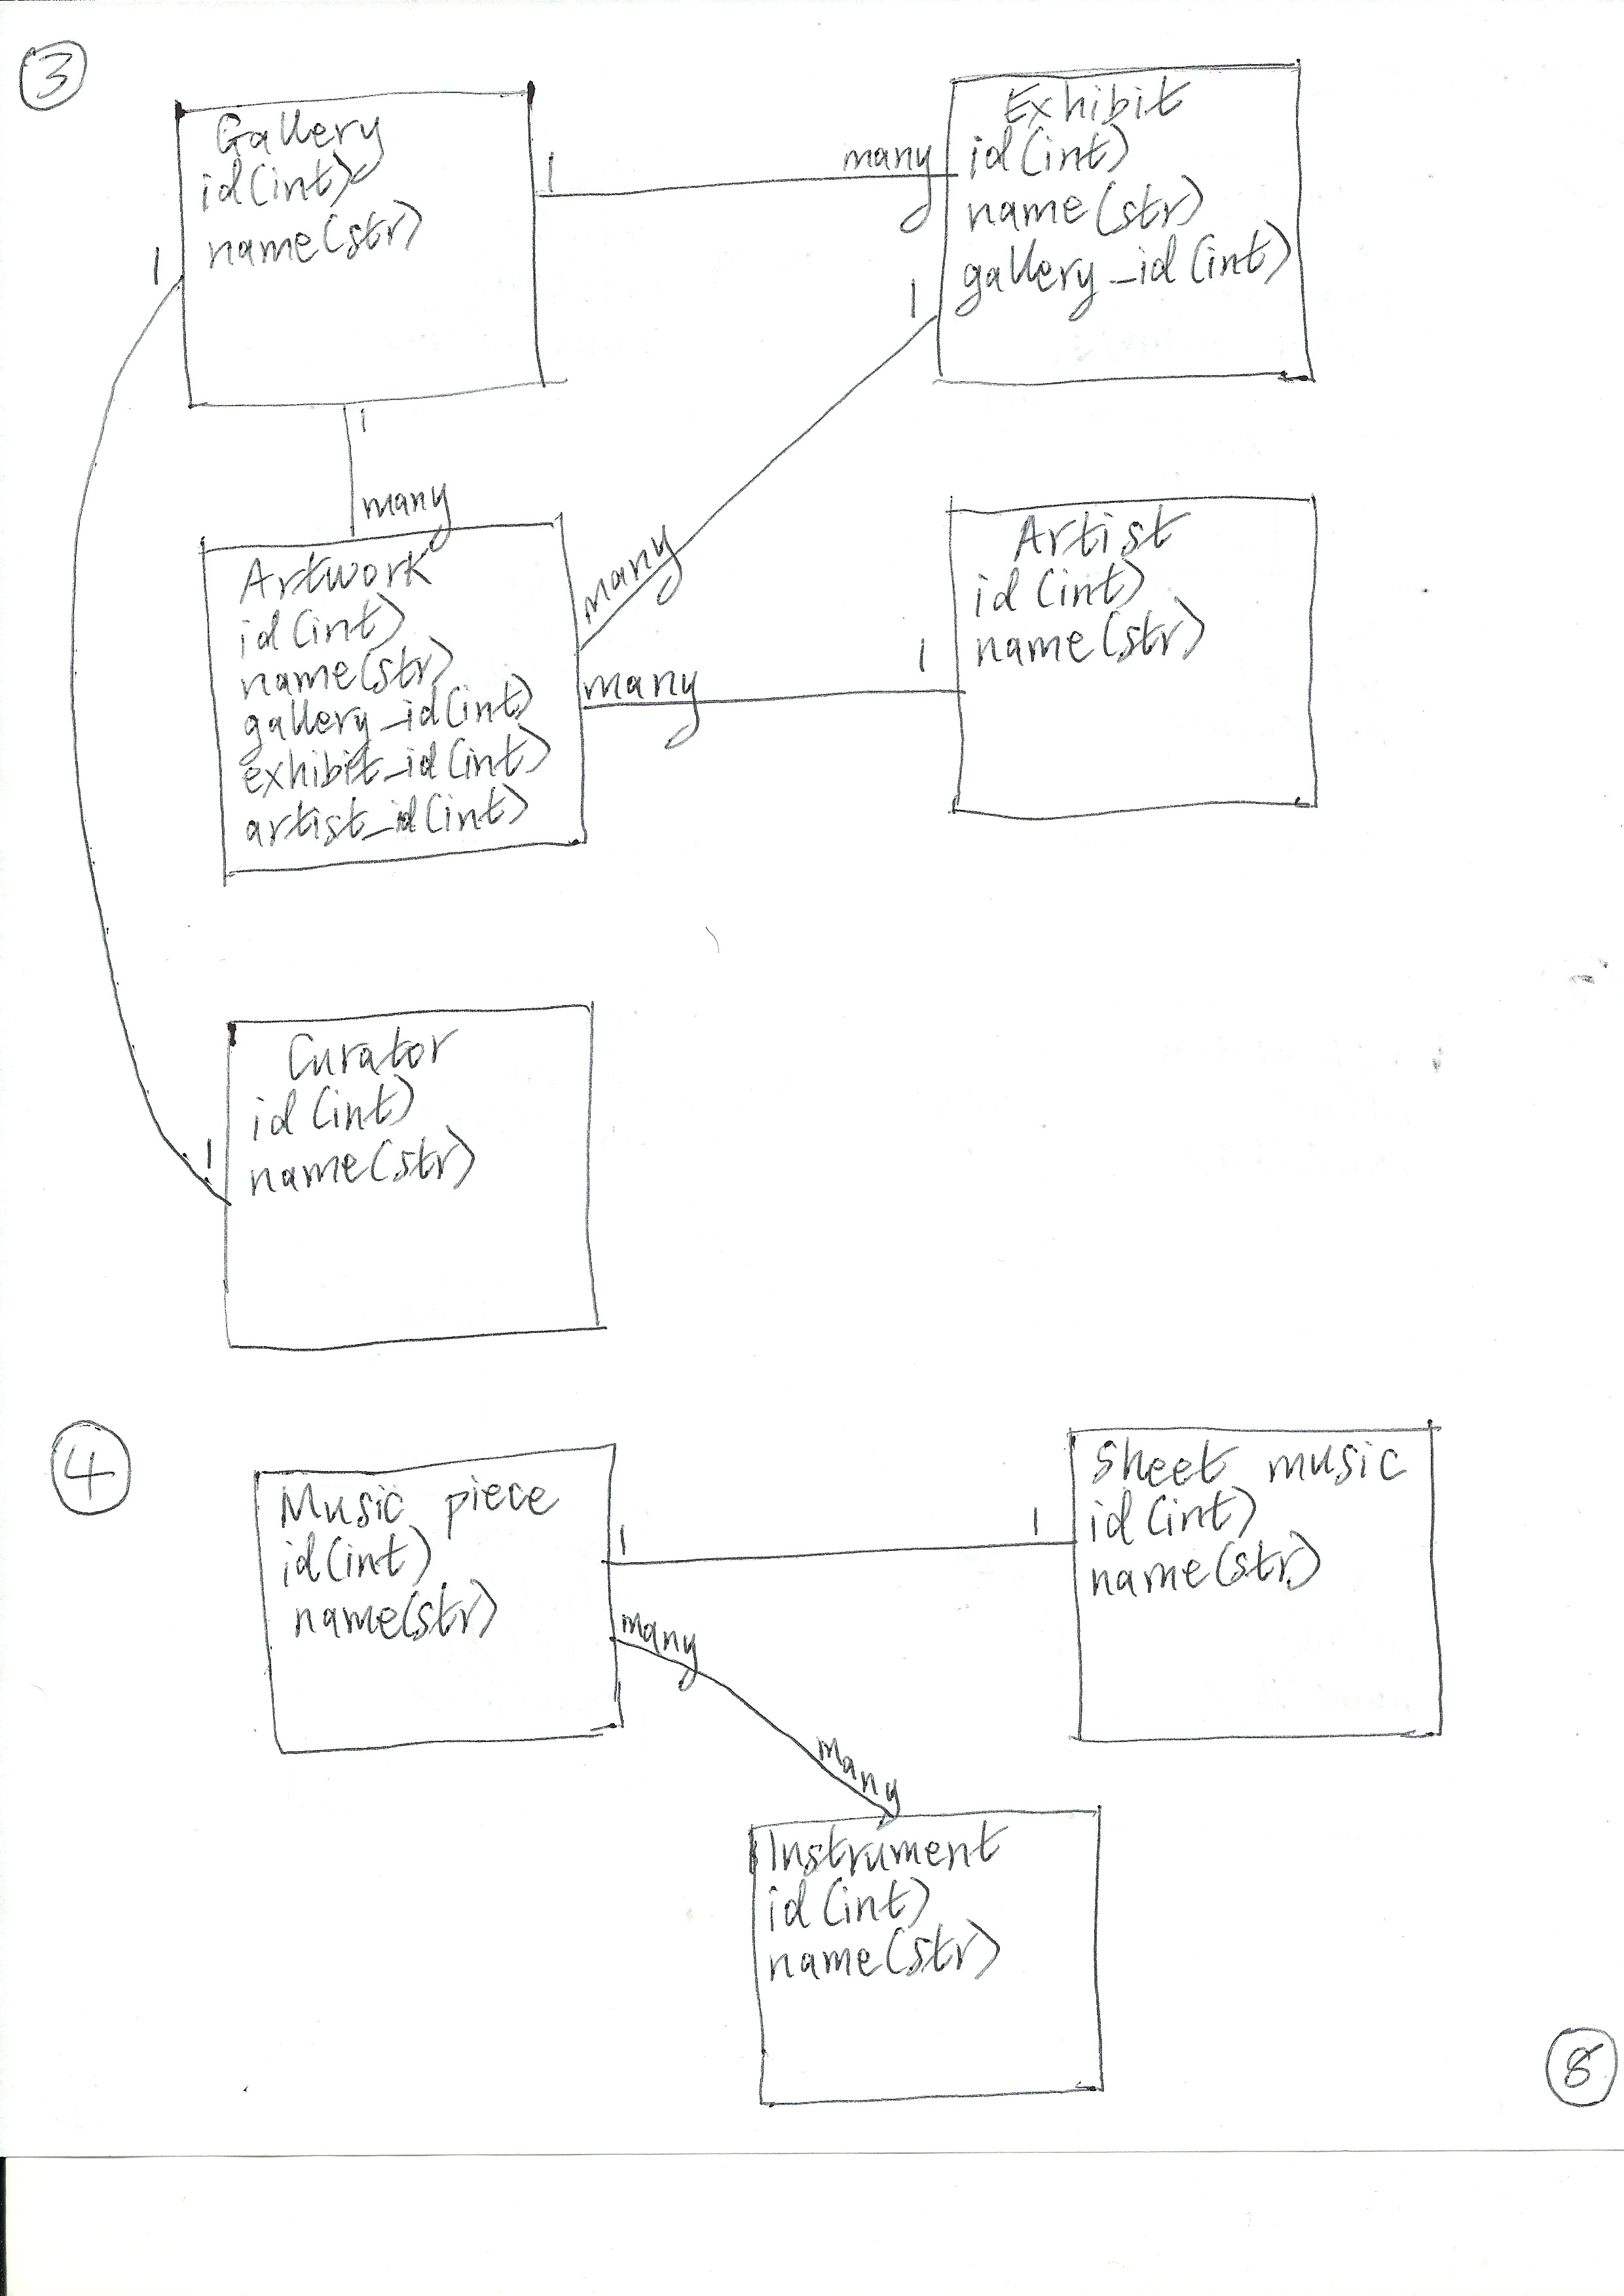 3
Gallery
id(int)
name(str)
1
1
1
many
Exhibit
id(int)
name(str)
gallery_id(int)
1
many
Artwork
id(int)
name(str)
gallery_id(int)
exhibit_id(int)
artist_id(int)
many
many
1
Artist
id(int)
name(str)
Curator
id(int)
name(str)
1
4
Music piece
id(int)
name(str)
1
1
Sheet music
id(int)
name(str)
many
many
Instrument
id(int)
name(str)
8